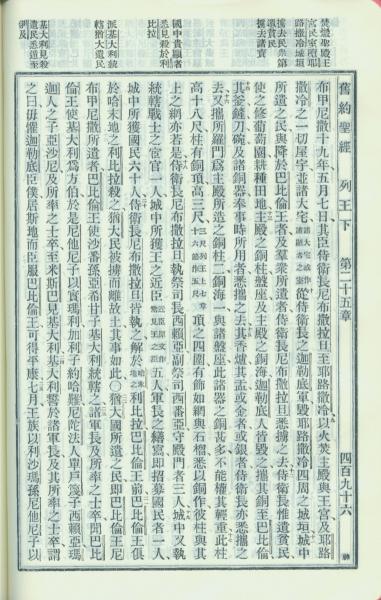 舊約聖經 列王下 第二十五章 四百九十六
焚燬聖殿王
宮民家壇耶
路撒冷城垣
擄去民眾第
遺貧民
擄去諸貴
國中貴顯者
悉見殺於利
比拉
派基大利統
轄猶大遺民
基大利見殺
遺民悉遁至
伊及
布甲尼撒十九年五月七日其臣侍衛長尼布撒拉旦至耶路撒冷以火焚主殿與王宮及耶路
撒冷之一切屋宇並諸大宅諸大宅或作諸顯者之室從侍衛長之迦勒底軍毀耶路撒冷四周之城垣城中
所遺之民與降於巴比倫王者及羣眾所遺者侍衛長尼布撒拉旦悉擄之去侍衛長惟遺貧民
使之修葡萄園耕種田地主殿之銅柱盤座及主殿之銅海迦勒底人皆毀之攜其銅至巴比倫
其釜鏟刀碗及諸銅器奉事時所用者悉攜之去其香爐其盂或金者或銀者侍衛長亦悉攜之
去又攜所羅門為主殿所造之銅柱二銅海一與諸盤座此諸器之銅甚多不能權其輕重此柱
高十八尺柱有銅頂高三尺三尺列王上七章十六節作五尺項之四圍有飾如網與石榴悉以銅作彼柱與其
上之網亦若是侍衛長尼布撒拉旦執祭司長西賴亞副祭司西番亞守殿門者三人城中又執
統轄戰士之宦官一人城中所獲王之近臣近臣原文作常見王之面五人軍長之繕寫即招募國民者一人
城中所獲國民六十人侍衛長尼布撒拉旦皆執之解於哈末地之利比拉巴比倫王前巴比倫王
於哈末地之利比拉殺之猶大民被擄而離故土其事如此〇猶大國所遺之民即巴比倫王尼
布甲尼撒所遺者巴比倫王使沙番孫亞希甘子基大利統轄之諸軍長及所率之士卒聞巴比
倫王使基大利為方伯於是尼他尼子以實瑪利加利亞子約哈難尼陀法人單戶篾子西賴亞瑪
迦人之子亞撒尼及所率之士卒至米斯巴見基大利基大利誓於諸軍長及其所率之士卒謂
之曰毋懼迦勒底臣僕居斯地而臣服巴比倫王可得平康七月王族以利沙瑪孫尼他尼子以